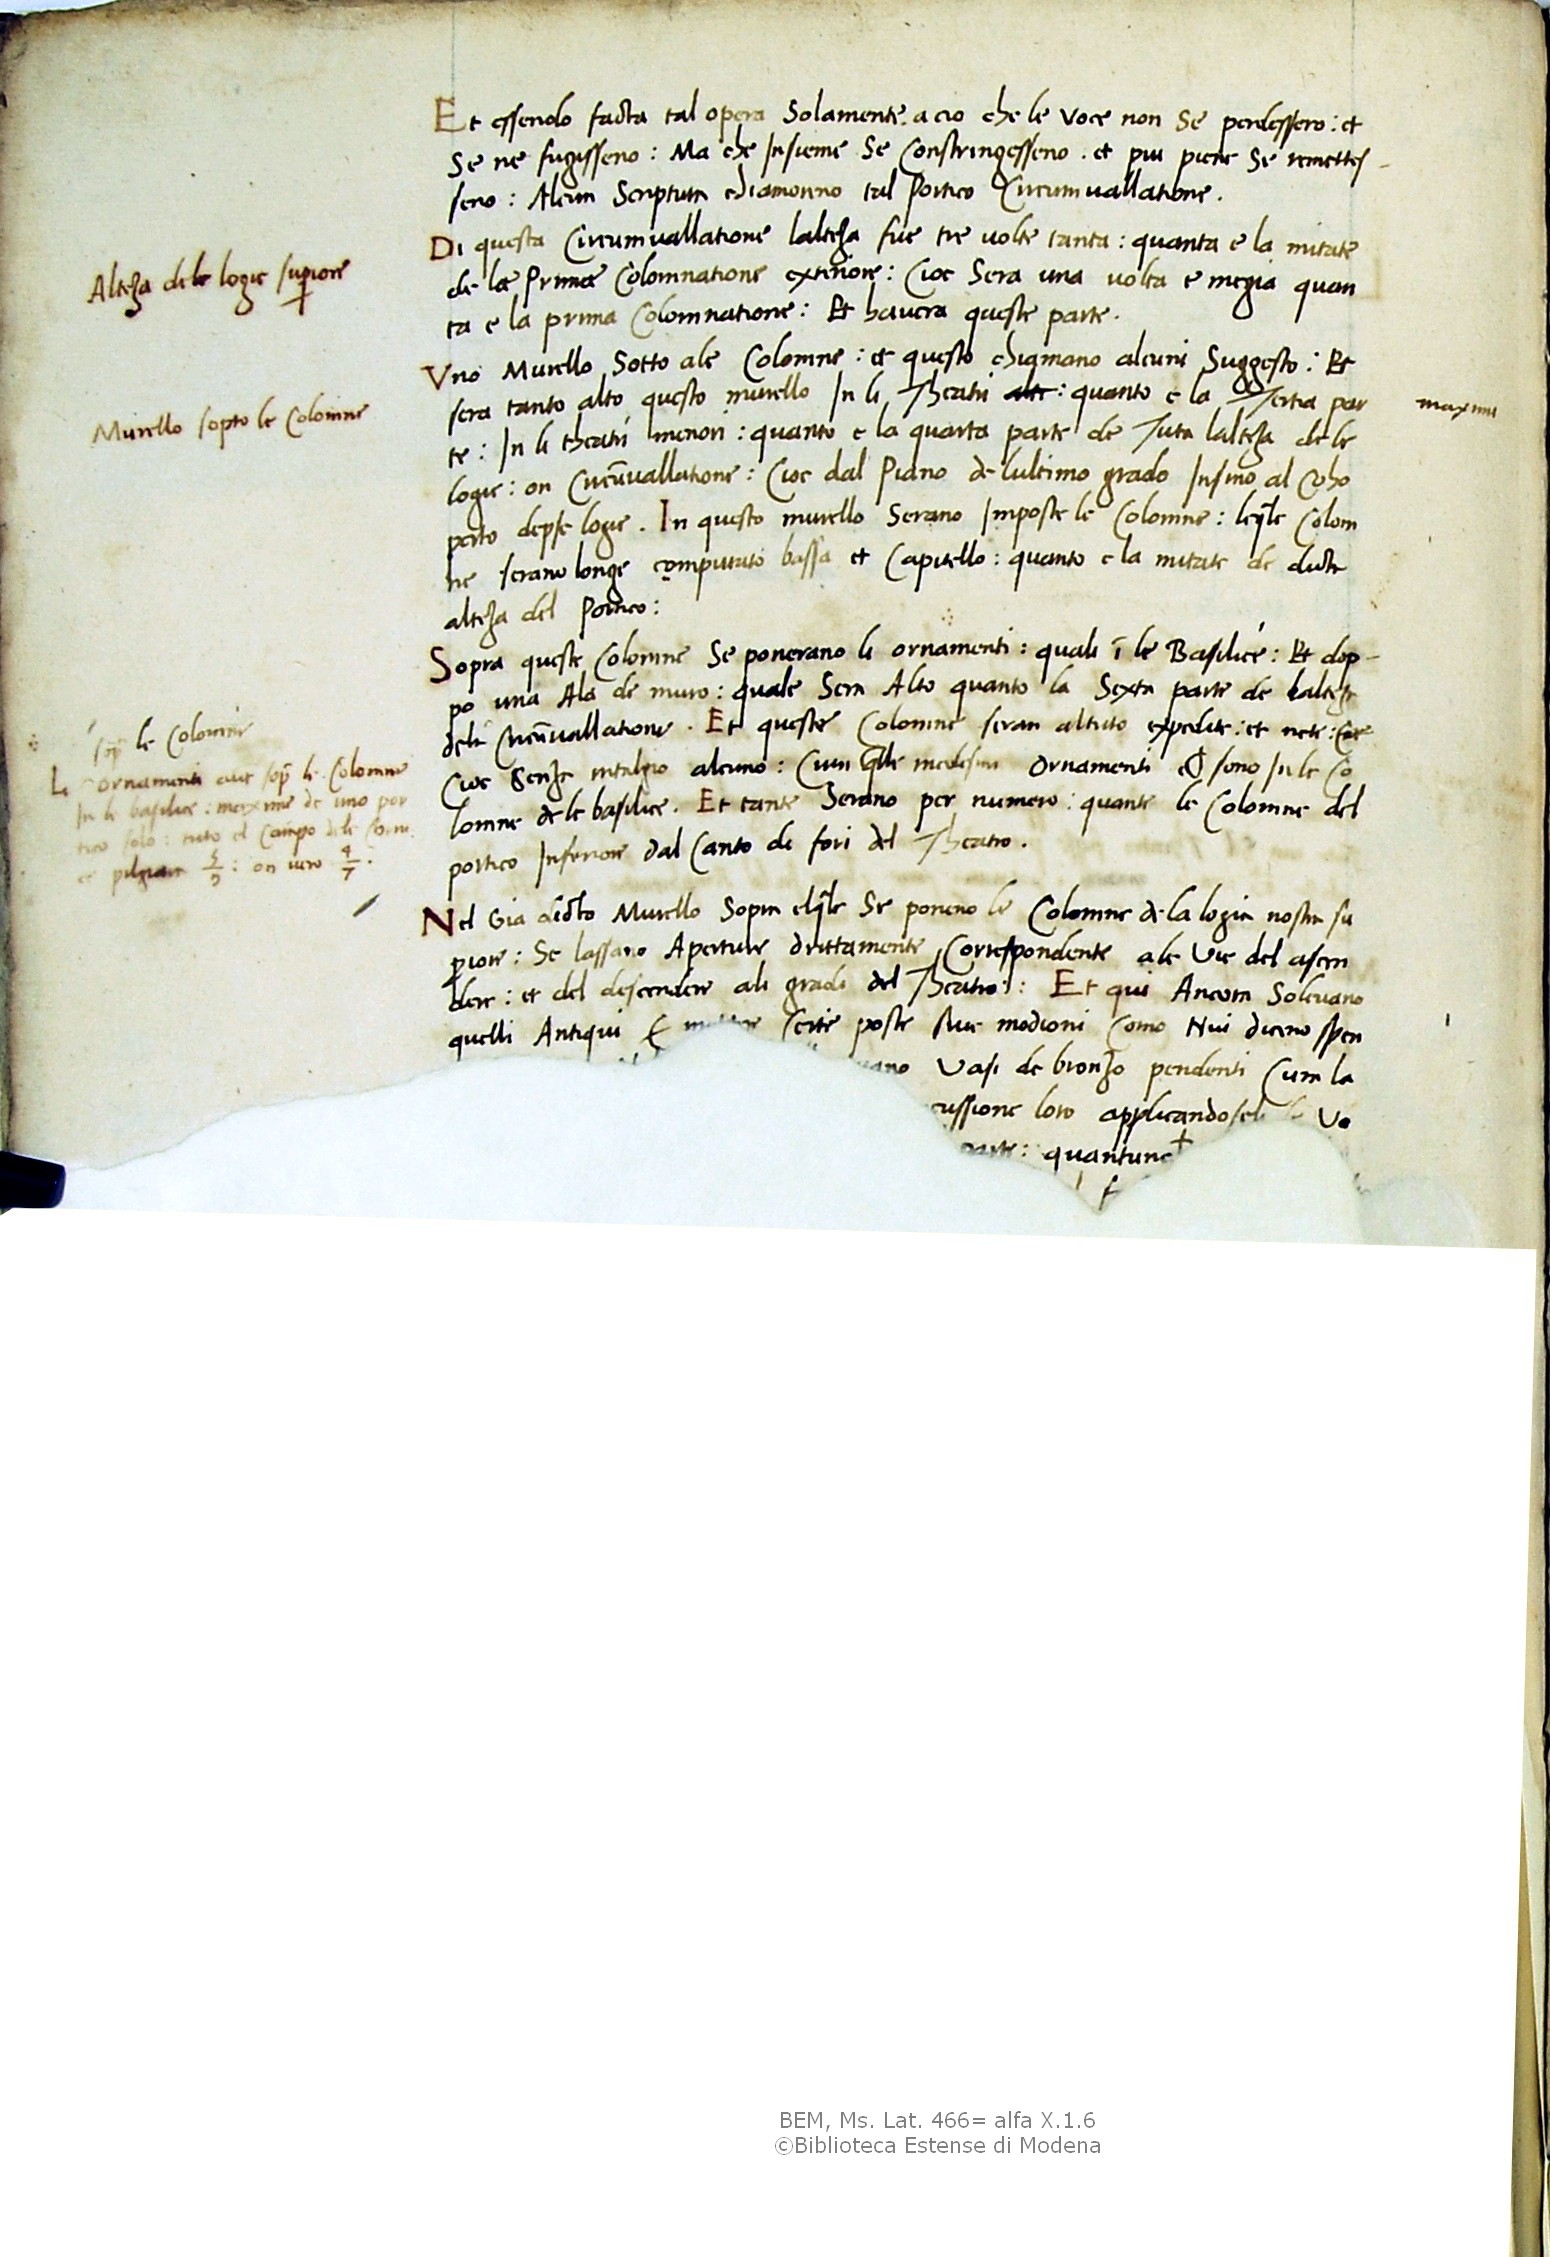 Et essendo facta tal opera Solamente. a cio che le Voce non Se perdessero: et
Se ne fugisseno: Ma che Insieme Se Constringesseno. et piu piene Se remettes-
seno: Alcun Scriptura chiamorno tal Portico Circumvallatione.
Alteza de le logie supiore
Di questa Circumvallatione lalteza fue tre volte tanta: quanta e la mitate
de la Prima Colomnatione exteriore: Cioe Sera una volta e megia quan
ta e la prima Colomnatione: Et havera queste parte.
Murello sopto le Colomne
Vno Murello Sotto ale Colomne: et questo chiamano alcuni Suggesto: Et
sera tanto alto questo murello In li Theatri : quanto e la Tertia par
maximi
te: In li theatri menori: quanto e la quarta parte de Tuta lalteza de le
logie: on Circūvallatione: Cioe dal Piano de lultimo grado Insino al Coho
perto depse logie. In questo murello Serano Imposte le Colomne: leqle Colom
ne serano longe computato bassa et Capitello: quanto e la mitate de dicte
alteza del Portico:
Sopra queste Colomne Se ponerano li ornamenti: quali ī le Basilice: Et dop-
po una Ala de muro: quale Sera Alto quanto la Sexta parte de Lalteza
dela Circūvallatione. Et queste Colomne seran altuto expedite: et nete:
Cioe Senza intalgio alcuno: Cum qlle medesimi Ornamenti ch sono In le Co
lomne de le basilice. Et tante Serano per numero: quante le Colomne del
portico Inferiore dal Canto di fori del Theatro.
sop le Colomne
Li ornamenti sop le Colomne
In le basilice: maxime de uno por
tico solo: tuto el Campo dele Colom.
: on vero 4/7.
Nel Gia dicto Murello Sopra elqle Se poneno le Colomne de la logia nostra su
piore: Se lassano Aperture drittamente Correspondente ale Vie del ascen
dere: et del descendere ali gradi del Theatro: Et qui Ancora Solevano
quelli Antiqui mettere Certe poste sive modioni Como Nui diceno spen
Vasi de bronzo pendenti Cum la
cussione loro applicandoseli Vo
parte: quantunch
BEM, Ms. Lat. 466= alfa X.1.6
©Biblioteca Estense di Modena